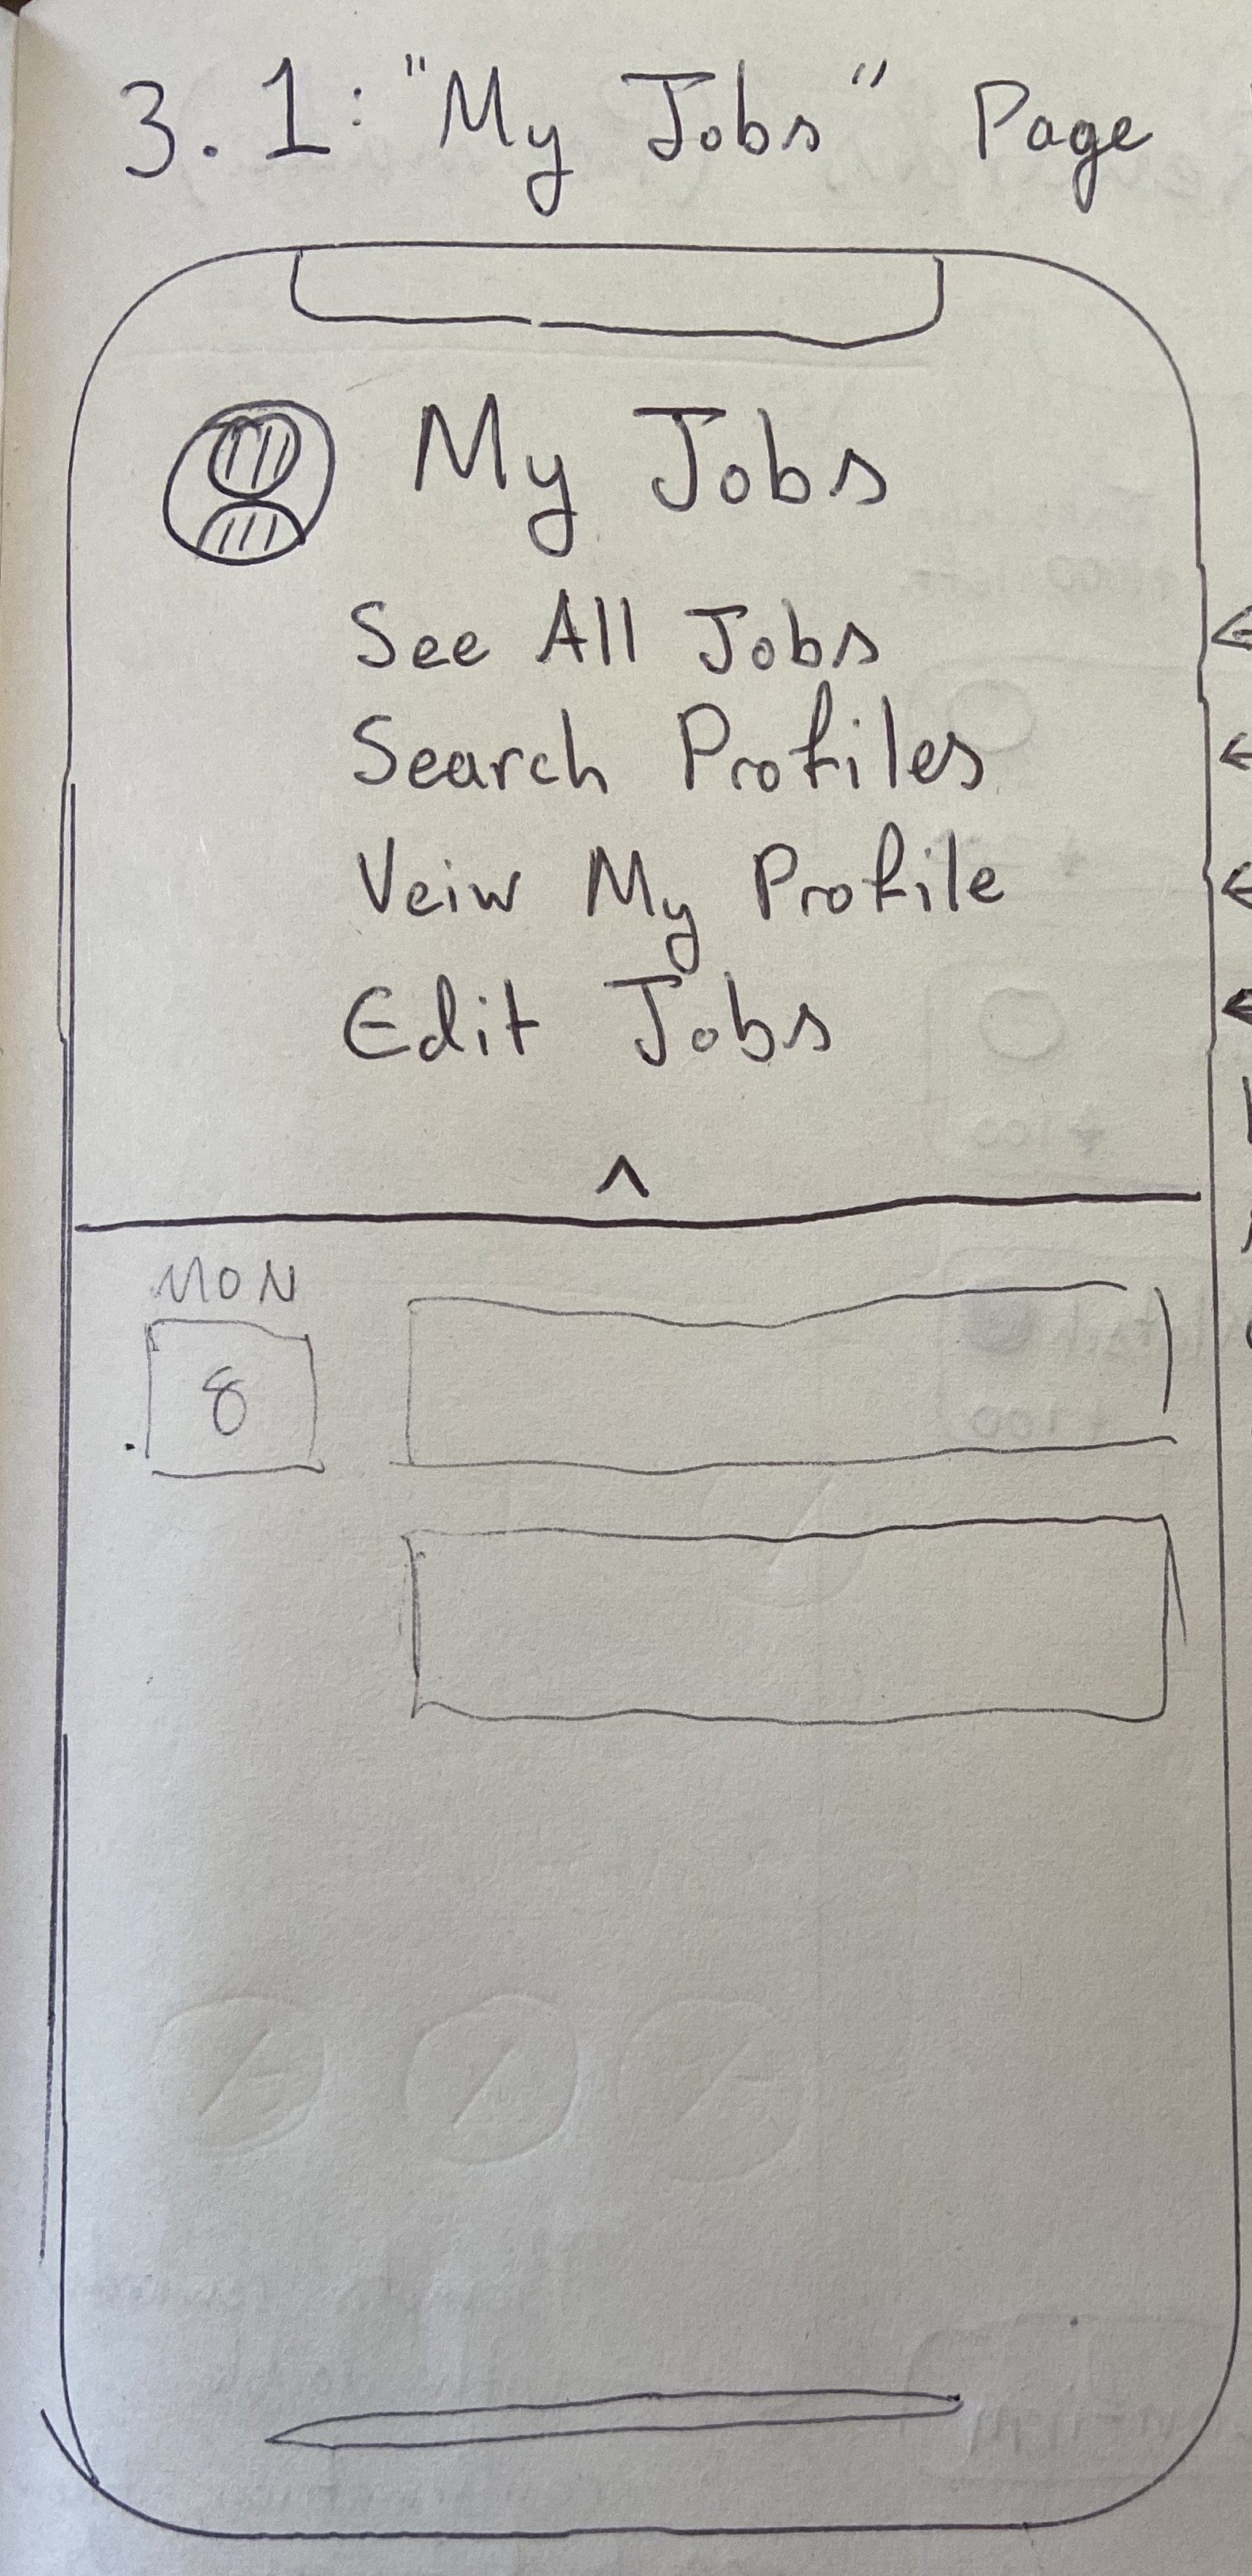 3.1: "My Jobs" Page
My Jobs
See All Jobs
Search Profiles
Veiw My Profile
Edit Jobs
^
MON
8